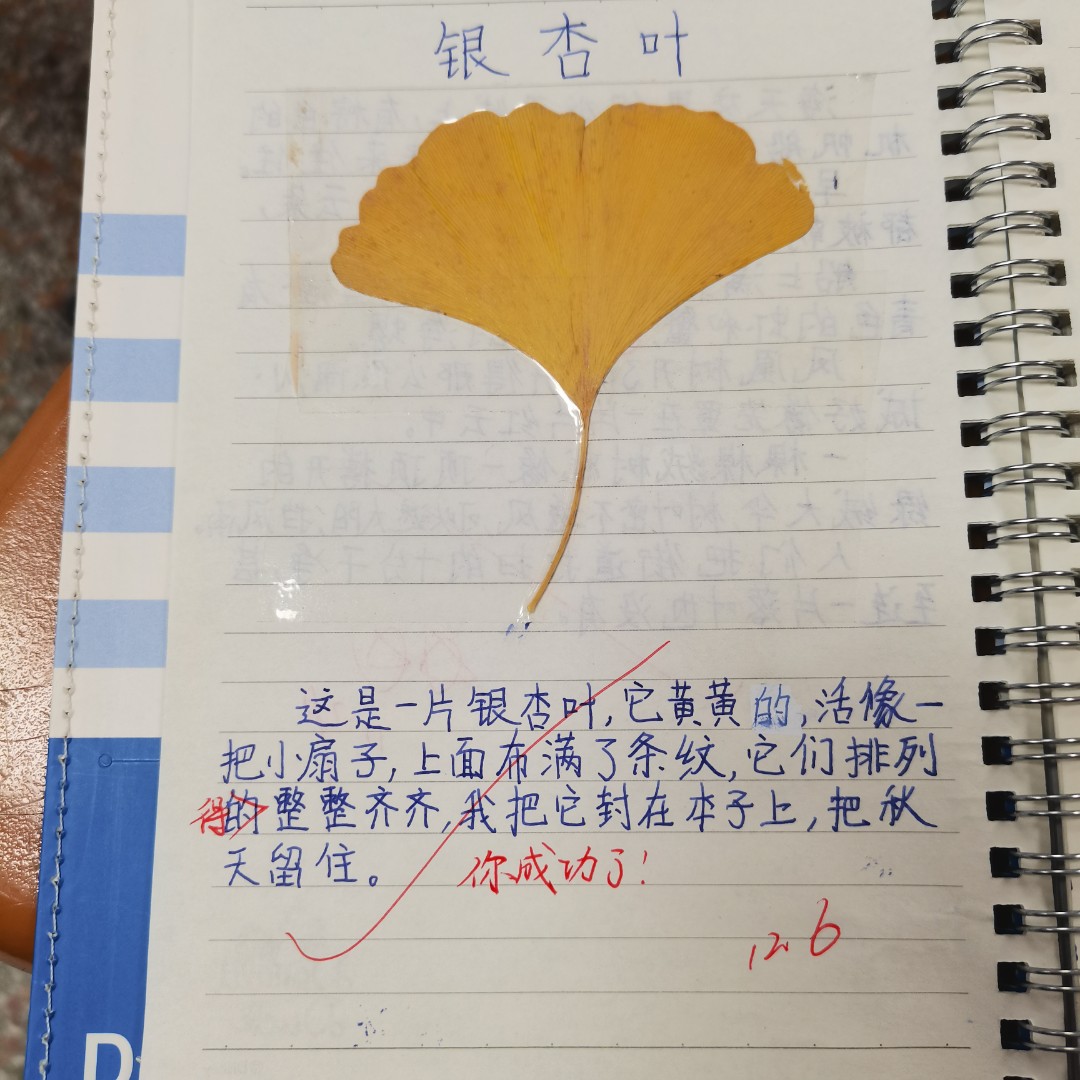 银杏叶
这是一片银杏叶,它黄黄的,活像一
把小扇子,上面布满了条纹,它们排列
得
的整整齐齐,我把它封在本子上,把秋
天留住。
你成功了!
12.6
D